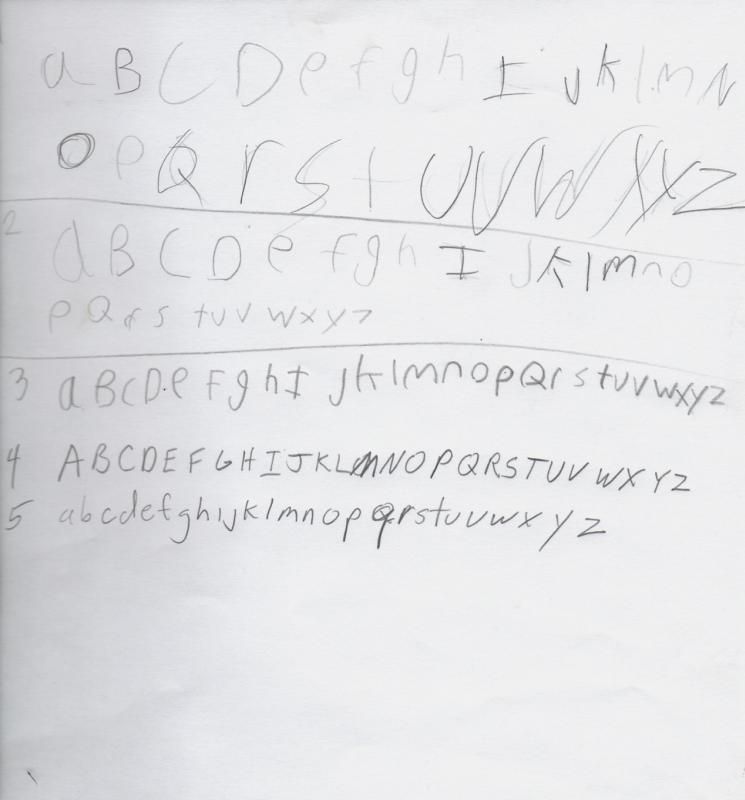 a B C D e f g h I J k l m N
O P Q r S t U V W X Y Z
2 a B C D e f g h I J k l m n o
P Q r s t u v w x y z
3 a B C D e f g h I J k l m n o p Q r s t u v w x y z
4 A B C D E F G H I J K L M N O P Q R S T U V W X Y Z
5 a b c d e f g h i j k l m n o p q r s t u v w x y z